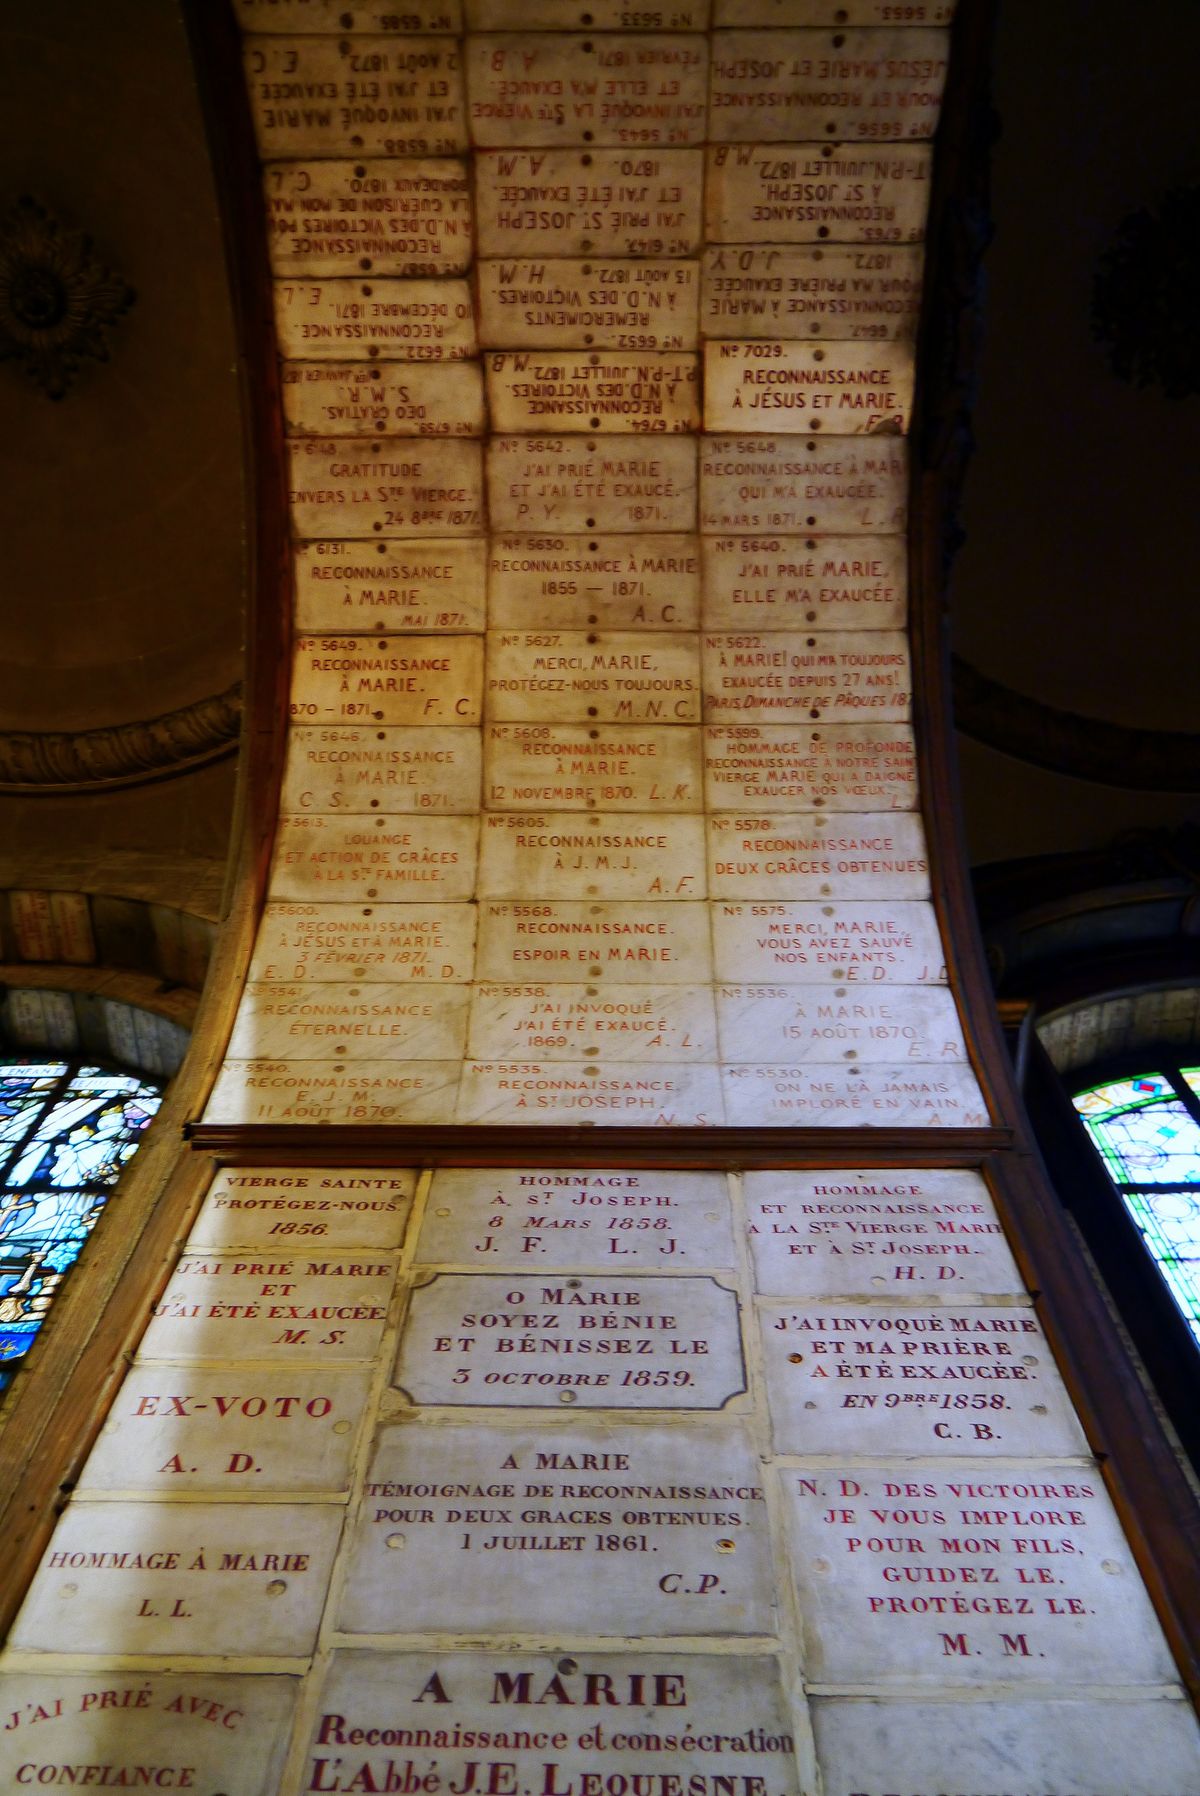 Nº 6585.
Nº 5635.
Nº 5655.
Nº 6588.
J'AI INVOQUÉ MARIE
ET J'AI ÉTÉ EXAUCÉE
2 AOÛT 1872. E. C
Nº 5645.
J'AI INVOQUÉ LA STE VIERGE
ET ELLE M'A EXAUCÉ.
FÉVRIER 1871. A. B.
Nº 5656.
MOUR ET RECONNAISSANCE
JÉSUS, MARIE ET JOSEPH
Nº 6587.
RECONNAISSANCE
À N.D. DES VICTOIRES
LA GUÉRISON DE MON
BORDEAUX 1870. C. L
Nº 6147.
J'AI PRIÉ ST JOSEPH
ET J'AI ÉTÉ EXAUCÉE.
1870. A. M.
Nº 6763.
RECONNAISSANCE
À ST JOSEPH.
T-P.N. JUILLET 1872. M. B
Nº 6622.
RECONNAISSANCE.
10 DÉCEMBRE 1871. E. L.
Nº 6652.
REMERCIMENTS
À N.D. DES VICTOIRES.
13 AOÛT 1872. H. M.
Nº 6647.
RECONNAISSANCE À MARIE
POUR MA PRIÈRE EXAUCÉE.
1872. J. D. Y.
Nº 6759.
DEO GRATIAS.
S. M. R.
1ER JANVIER 187
Nº 6764.
RECONNAISSANCE
À N.D. DES VICTOIRES.
P.T-P.N. JUILLET 1872. M. B
Nº 7029.
RECONNAISSANCE
À JÉSUS ET MARIE.
Nº 6148.
GRATITUDE
ENVERS LA STE VIERGE.
24 8BRE 1871.
Nº 5642.
J'AI PRIÉ MARIE
ET J'AI ÉTÉ EXAUCÉ.
P. Y. 1871.
Nº 5648.
RECONNAISSANCE À MAR
QUI M'A EXAUCÉE.
14 MARS 1871. L.
Nº 6131.
RECONNAISSANCE
À MARIE.
MAI 1871.
Nº 5630.
RECONNAISSANCE À MARIE
1855 — 1871.
A. C.
Nº 5640.
J'AI PRIÉ MARIE,
ELLE M'A EXAUCÉE.
Nº 5649.
RECONNAISSANCE
À MARIE.
870 - 1871. F. C.
Nº 5627.
MERCI, MARIE,
PROTÉGEZ-NOUS TOUJOURS.
M. N. C.
Nº 5622.
À MARIE! QUI M'A TOUJOURS
EXAUCÉE DEPUIS 27 ANS!
PARIS, DIMANCHE DE PÂQUES 187
Nº 5646.
RECONNAISSANCE
À MARIE.
C. S. 1871.
Nº 5608.
RECONNAISSANCE
À MARIE.
12 NOVEMBRE 1870. L. K.
Nº 5599.
HOMMAGE DE PROFONDE
RECONNAISSANCE À NOTRE SAINT
VIERGE MARIE QUI A DAIGNÉ
EXAUCER NOS VŒUX.
L.
Nº 5613.
LOUANGE
ET ACTION DE GRÂCES
À LA STE FAMILLE.
Nº 5605.
RECONNAISSANCE
À J. M. J.
A. F.
Nº 5578.
RECONNAISSANCE
DEUX GRÂCES OBTENUES
5600.
RECONNAISSANCE
À JÉSUS ET À MARIE.
3 FÉVRIER 1871.
E. D. M. D.
Nº 5568.
RECONNAISSANCE.
ESPOIR EN MARIE.
Nº 5575.
MERCI, MARIE,
VOUS AVEZ SAUVÉ
NOS ENFANTS.
E. D. J. D
Nº 5541.
RECONNAISSANCE
ÉTERNELLE.
Nº 5538.
J'AI INVOQUÉ
J'AI ÉTÉ EXAUCÉ.
1869. A. L.
Nº 5536.
À MARIE.
15 AOÛT 1870.
E. R.
Nº 5540.
RECONNAISSANCE
E. J. M.
11 AOÛT 1870.
Nº 5535.
RECONNAISSANCE.
À ST JOSEPH.
N. S.
Nº 5530.
ON NE L'A JAMAIS
IMPLORÉ EN VAIN.
A. M
VIERGE SAINTE
PROTÉGEZ-NOUS.
1856.
HOMMAGE
À ST JOSEPH.
8 MARS 1858.
J. F. L. J.
HOMMAGE
ET RECONNAISSANCE
A LA STE VIERGE MARIE
ET À ST JOSEPH.
H. D.
J'AI PRIÉ MARIE
ET
J'AI ÉTÉ EXAUCÉE
M. S.
O MARIE
SOYEZ BÉNIE
ET BÉNISSEZ LE
3 OCTOBRE 1859.
J'AI INVOQUÉ MARIE
ET MA PRIÈRE
A ÉTÉ EXAUCÉE.
EN 9BRE 1858.
C. B.
EX-VOTO
A. D.
A MARIE
TÉMOIGNAGE DE RECONNAISSANCE
POUR DEUX GRACES OBTENUES.
1 JUILLET 1861.
C. P.
N. D. DES VICTOIRES
JE VOUS IMPLORE
POUR MON FILS,
GUIDEZ LE.
PROTÉGEZ LE.
M. M.
HOMMAGE À MARIE
L. L.
J'AI PRIÉ AVEC
CONFIANCE
A MARIE
Reconnaissance et consécration
L'Abbé J.E. LEQUESNE.